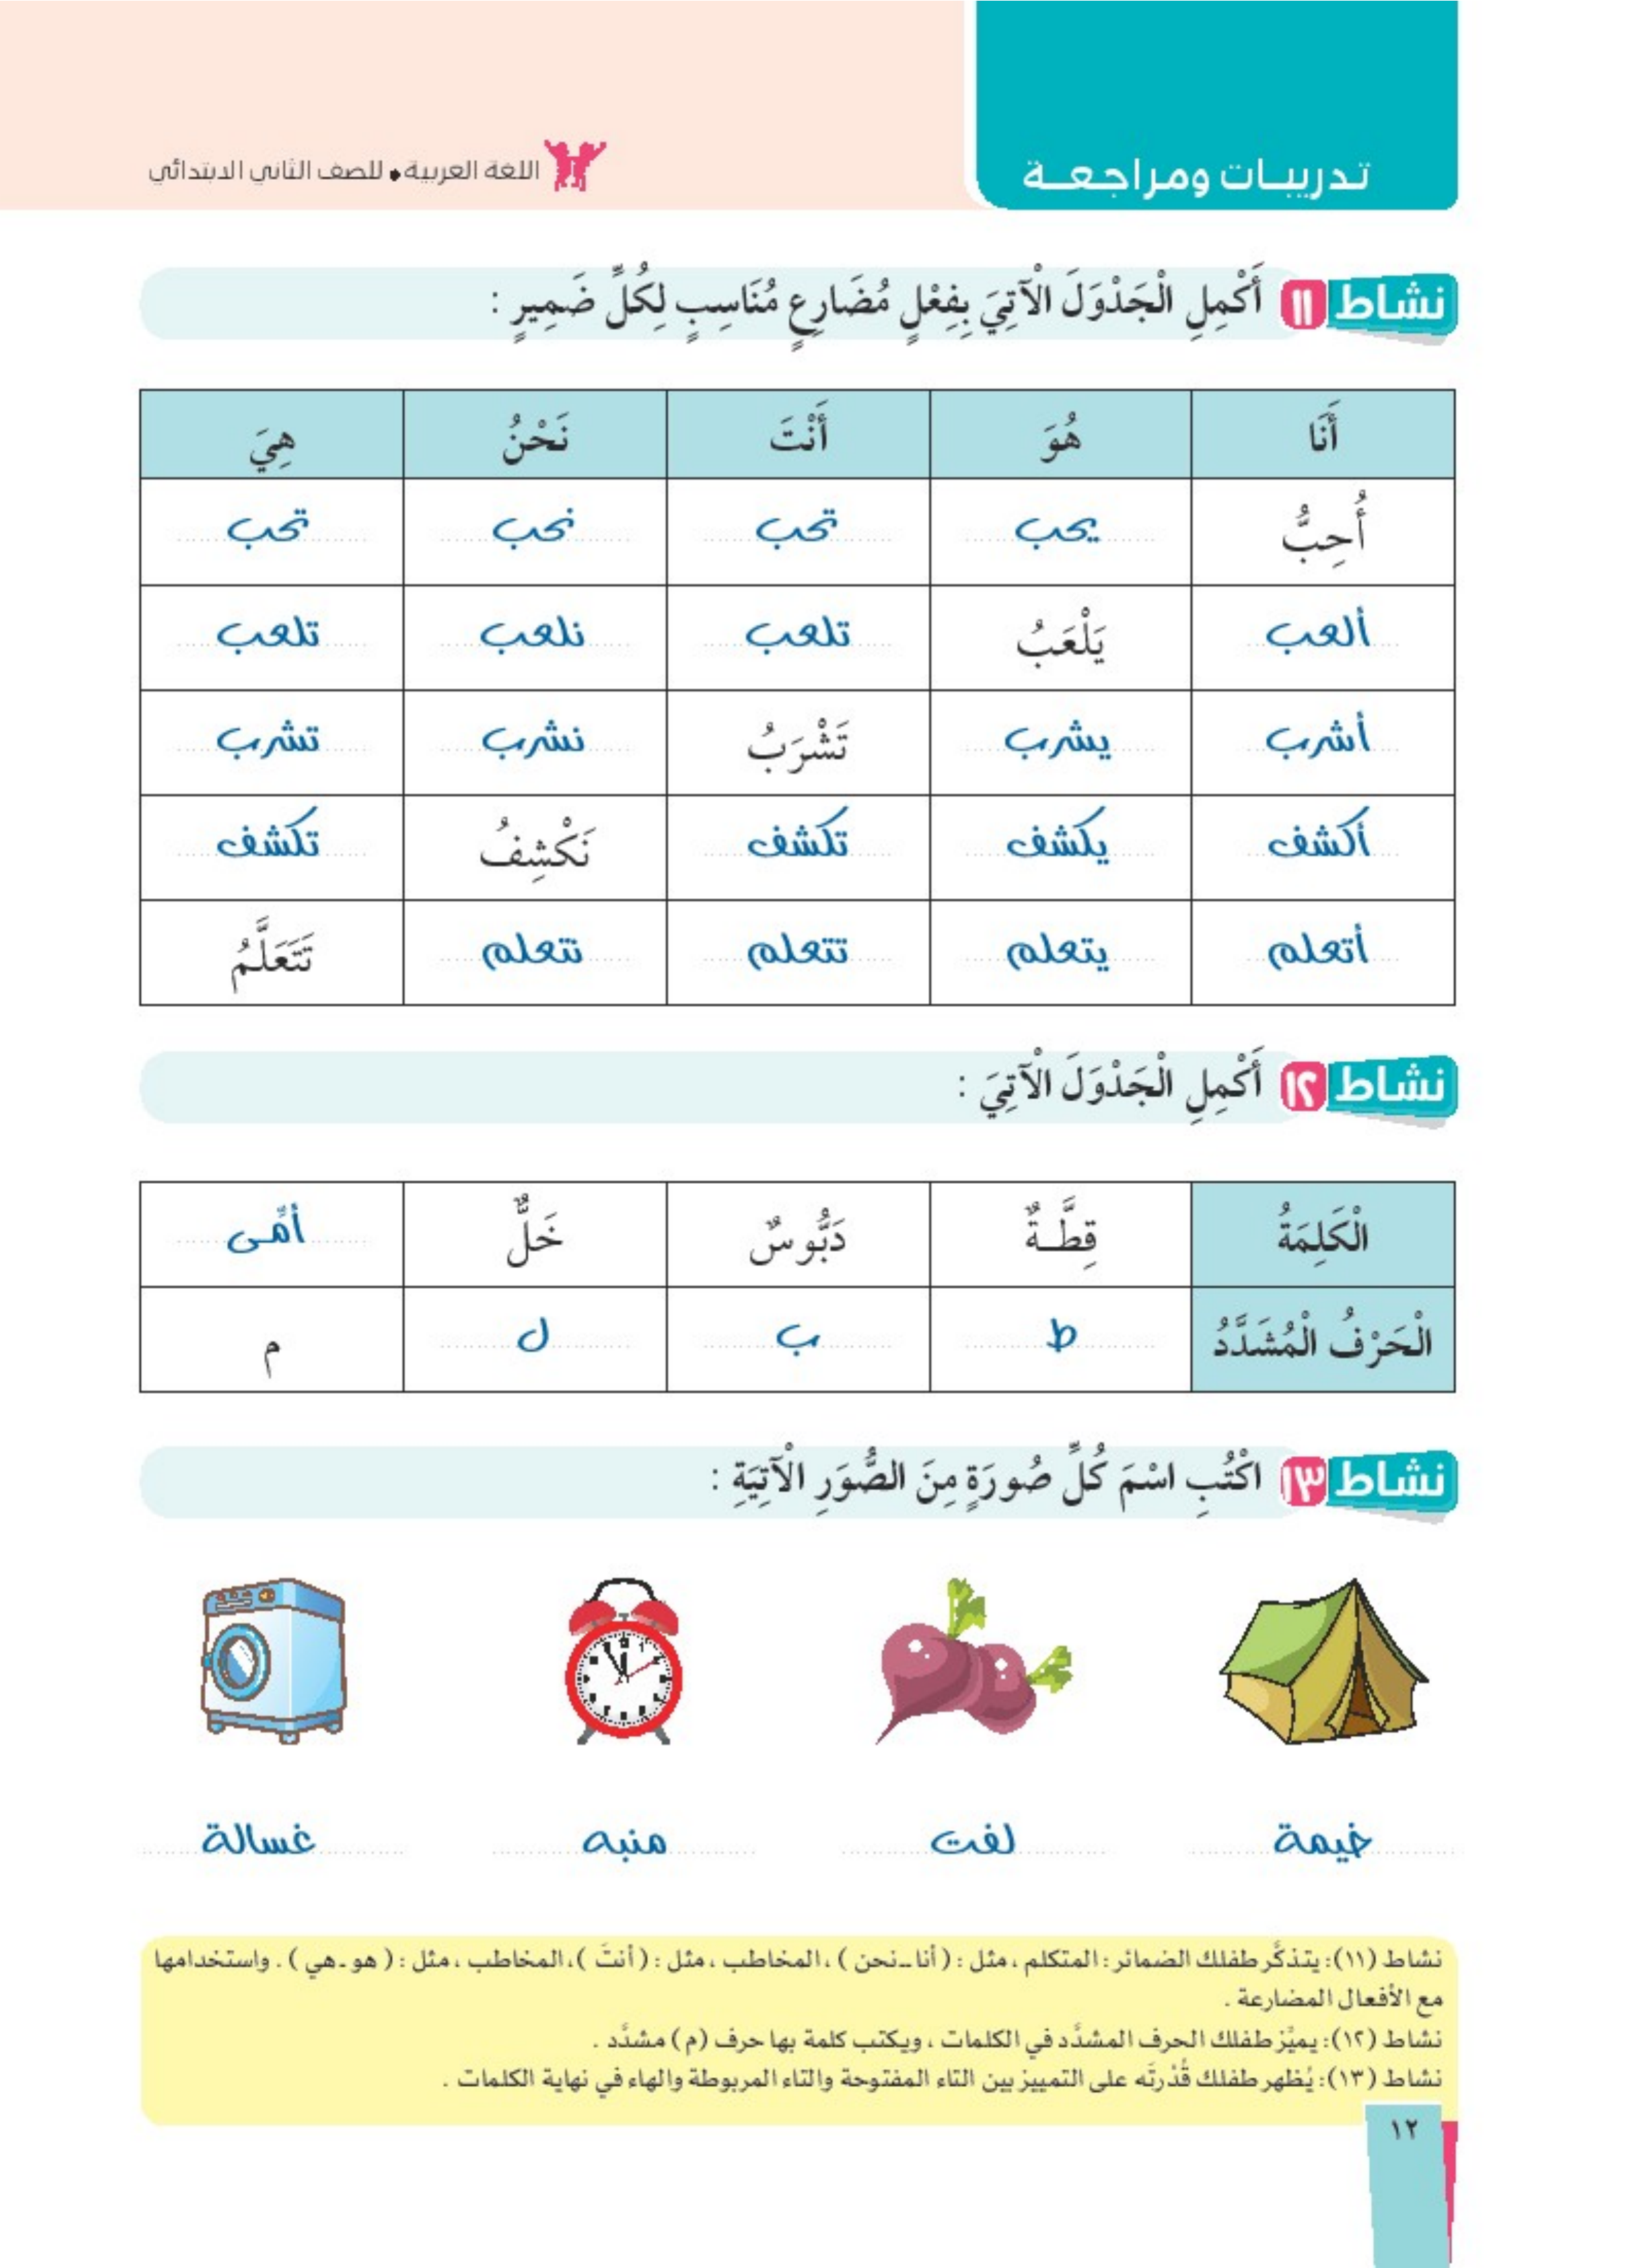 تدريبات ومراجعة
اللغة العربية • للصف الثاني الابتدائي
نشاط ١١ أَكْمِلِ الْجَدْوَلَ الْآتِيَ بِفِعْلٍ مُضَارِعٍ مُنَاسِبٍ لِكُلِّ ضَمِيرٍ :
أَنَا هُوَ أَنْتَ نَحْنُ هِيَ
أُحِبُّ يحب تحب نحب تحب
ألعب يَلْعَبُ تلعب نلعب تلعب
أشرب يشرب تَشْرَبُ نشرب تشرب
أكشف يكشف تكشف نَكْشِفُ تكشف
أتعلم يتعلم تتعلم نتعلم تَتَعَلَّمُ
نشاط ١٢ أَكْمِلِ الْجَدْوَلَ الْآتِيَ :
الْكَلِمَةُ قِطَّةٌ دَبُّوسٌ خَلٌّ أمِّى
الْحَرْفُ الْمُشَدَّدُ ط ب ل م
نشاط ١٣ اكْتُبِ اسْمَ كُلِّ صُورَةٍ مِنَ الصُّوَرِ الْآتِيَةِ :
خيمة لفت منبه غسالة
نشاط (١١): يتذكَّر طفلك الضمائر: المتكلم، مثل: (أنا ـ نحن)، المخاطب، مثل: (أنتَ)، المخاطب، مثل: (هو ـ هي). واستخدامها
مع الأفعال المضارعة .
نشاط (١٢): يميِّز طفلك الحرف المشدَّد في الكلمات ، ويكتب كلمة بها حرف (م) مشدَّد .
نشاط (١٣): يُظهر طفلك قُدْرتَه على التمييز بين التاء المفتوحة والتاء المربوطة والهاء في نهاية الكلمات .
١٢